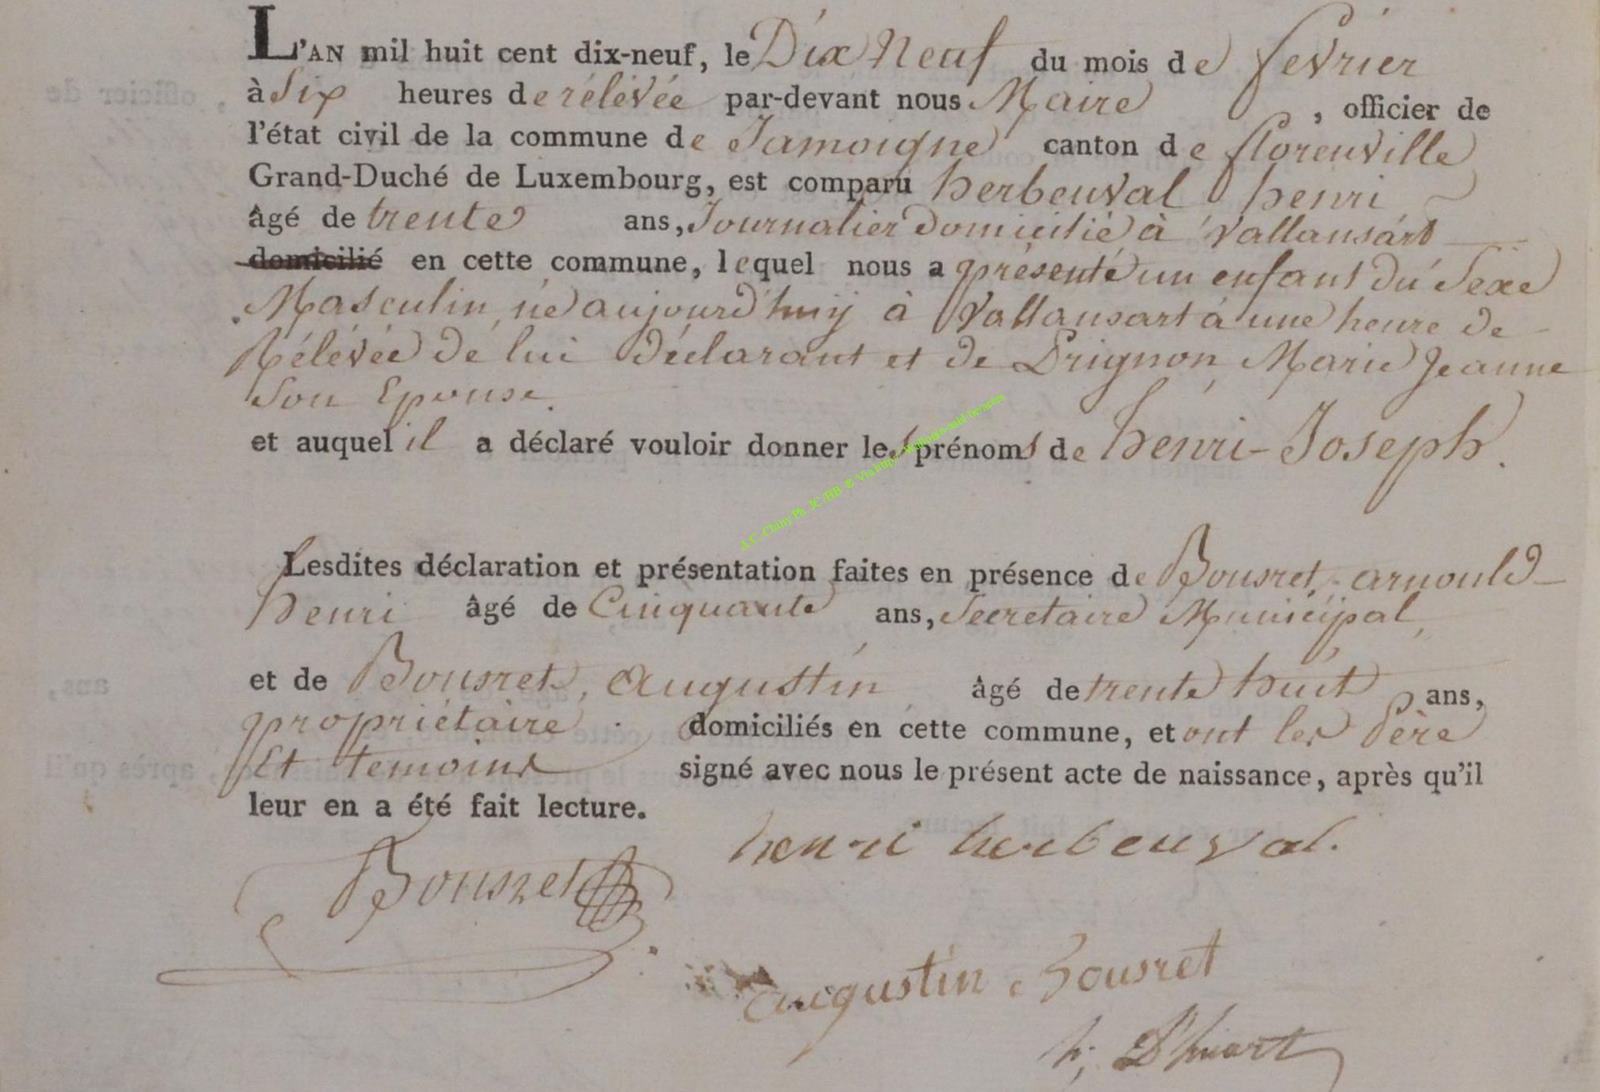 L'AN mil huit cent dix-neuf, le Dix Neuf du mois de fevrier
à Six heures de rélévée par-devant nous Maire , officier de
l'état civil de la commune de Jamoigne canton de florenville
Grand-Duché de Luxembourg, est comparu herbeuval henri
âgé de trente ans, Journalier Domicilié à Vallansart
domicilié en cette commune, lequel nous a présenté un enfant du Sexe
Masculin, né aujourd'huy à Vallansart à une heure de
Rélévée de lui Déclarant et de Prignon Marie Jeanne
Son Epouse.
et auquel il a déclaré vouloir donner les prénoms de henri-Joseph.
Lesdites déclaration et présentation faites en présence de Bousret, arnould
henri âgé de Cinquante ans, Secretaire Municipal,
et de Bousret, Augustin âgé de trente huit ans,
propriétaire domiciliés en cette commune, et ont les Père
Et temoins signé avec nous le présent acte de naissance, après qu'il
leur en a été fait lecture.
henri herbeuval.
Bousret
augustin Bousret
h; D'huart